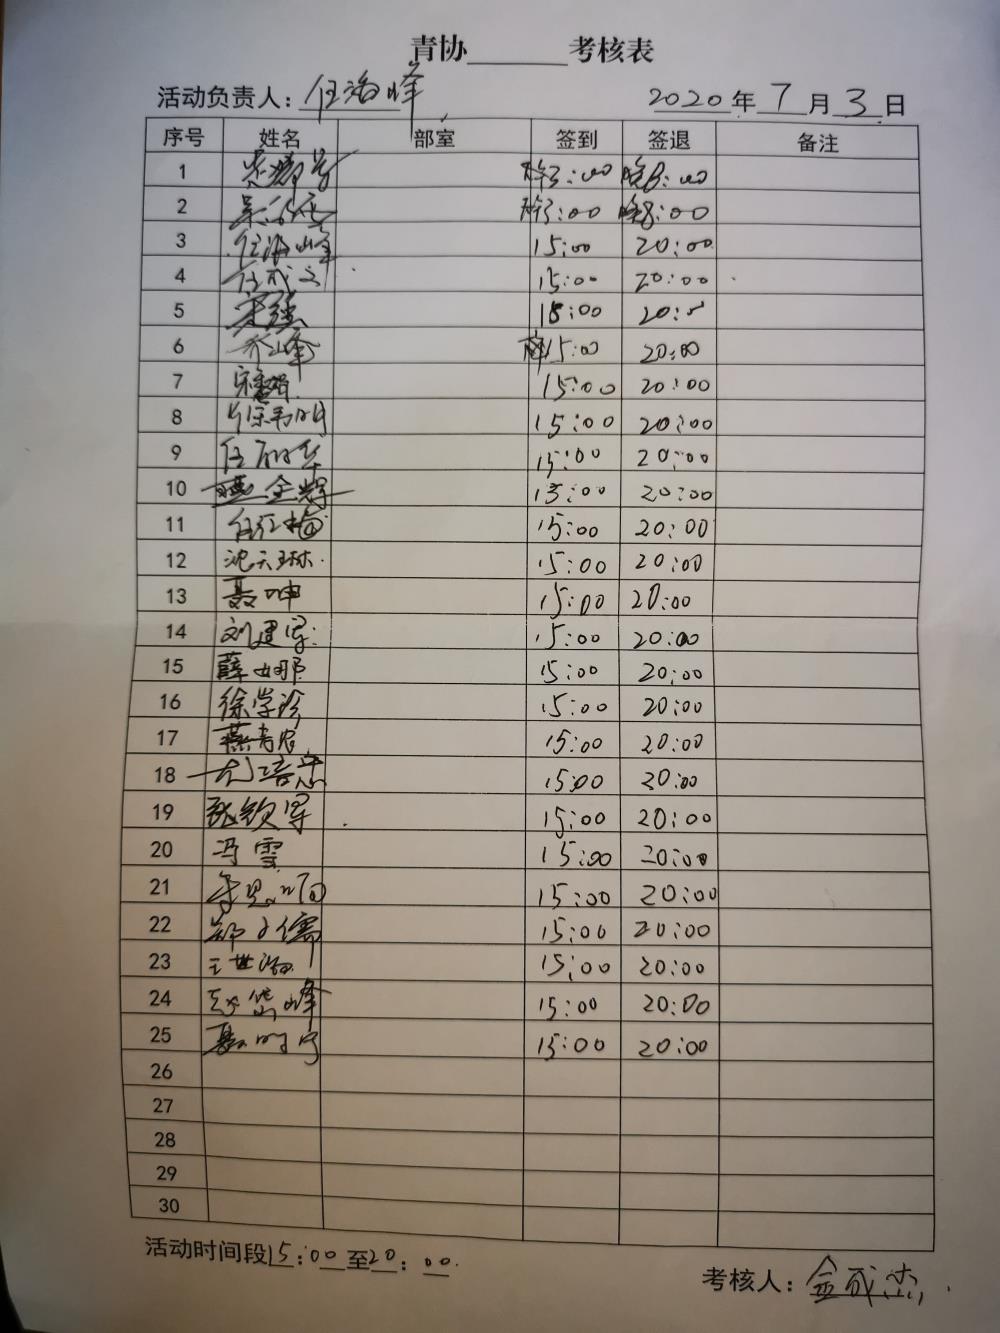 青协______考核表
活动负责人：任海峰 2020年7月3日
序号 姓名 部室 签到 签退 备注
1 :00 晚8:00
2 :00 晚8:00
3 任海峰 15:00 20:00
4 任成文 15:00 20:00
5 18:00 20:
6 乔峰 15:00 20:00
7 15:00 20:00
8 15:00 20:00
9 任丽华 15:00 20:00
10 15:00 20:00
11 任红梅 15:00 20:00
12 沈天琳 15:00 20:00
13 聂坤 15:00 20:00
14 刘建军 15:00 20:00
15 薛娜 15:00 20:00
16 徐学珍 15:00 20:00
17 15:00 20:00
18 尤培忠 15:00 20:00
19 张钦军 15:00 20:00
20 冯雪 15:00 20:00
21 15:00 20:00
22 郑子儒 15:00 20:00
23 王世 15:00 20:00
24 15:00 20:00
25 15:00 20:00
26
27
28
29
30
活动时间段15:00至20:00
考核人：金成杰